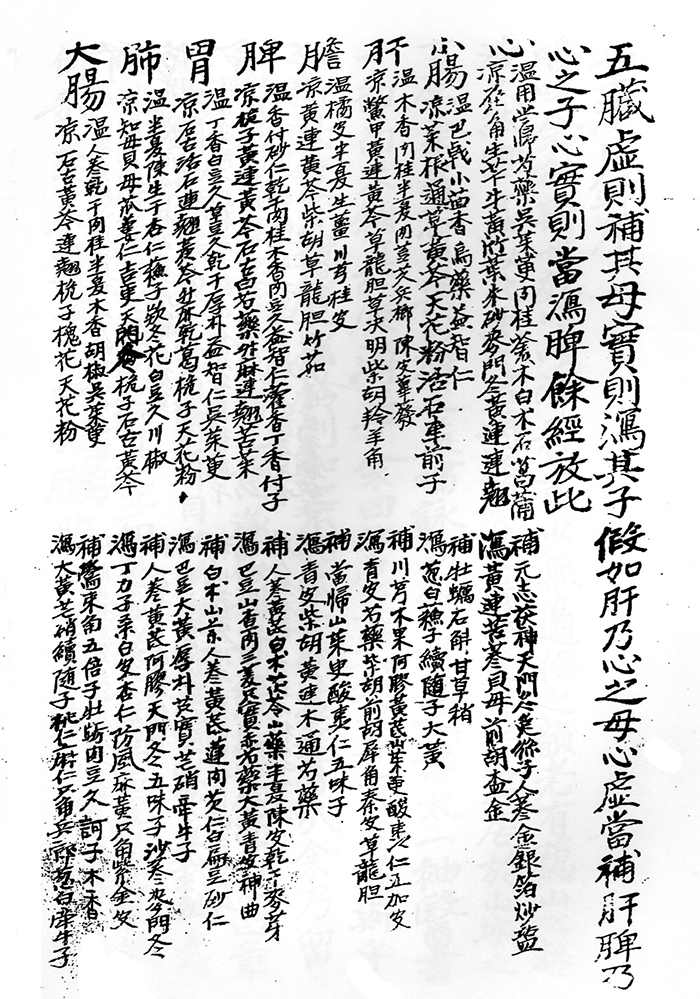 五臟虛則補其母實則瀉其子假如肝乃心之母心虛當補肝脾乃
心之子心實則當瀉脾餘經放此
心
溫用当歸芍藥吳茱萸肉桂蒼木白木石菖蒲
涼犀角生芐牛黃竹葉朱砂麥門冬黃連連翹
補元志茯神天門冬兔絲子人參金銀箔炒鹽
瀉黃連苦參貝母前胡
小腸
溫巴戟小茴香烏藥益智仁
涼茅根通草黃芩天花粉活石車前子
補牡蠣石斛甘草稍
瀉葱白蘓子續隨子大黃
肝
溫木香肉桂半夏肉豆久兵榔陳皮蓽發
涼鱉甲黃連黃芩草龍胆草決明柴胡羚羊角
補川芎木果阿膠黃茋山茱萸酸棗仁五加皮
瀉青皮芍藥柴胡前胡犀角秦皮草龍胆
膽
溫橘皮半夏生薑川芎桂皮
涼黃連黃芩柴胡草龍胆竹茹
補當歸山茱萸酸棗仁五味子
瀉青皮柴胡黃連木通芍藥
脾
溫香付砂仁乾干肉桂木香肉豆久益智仁藿香丁香付子
涼梔子黃連黃芩石古白芍藥升麻連翹苦茱
補人參黃茋白木茯苓山藥半夏陳皮乾干麥芽
瀉巴豆山查肉三棱只實赤芍藥大黃青皮神曲
胃
溫丁香白豆久草豆久乾干厚朴益智仁吳茱萸
涼石古活石連翹黃芩升麻乾葛梔子天花粉
補白木山藥人參黃茋蓮肉芡仁白扁豆砂仁
瀉巴豆大黃厚朴只實芒硝牽牛子
肺
溫半夏陳生干杏仁蘓子款冬花白豆久川椒
涼知母貝母瓜蔞仁吉更天門冬梔子石古黃芩
補人參黃茋阿膠天門冬五味子沙參麥門冬
瀉丁力子桑白皮杏仁防風麻黃只角紫金皮
大腸
溫人參乾干肉桂半夏木香胡椒吳茱萸
涼石古黃芩連翹梔子槐花天花粉
補鶯束角五倍子牡蛎肉豆久訶子木香
瀉大黃芒硝續隨子桃仁麻仁只角兵郎葱白牽牛子